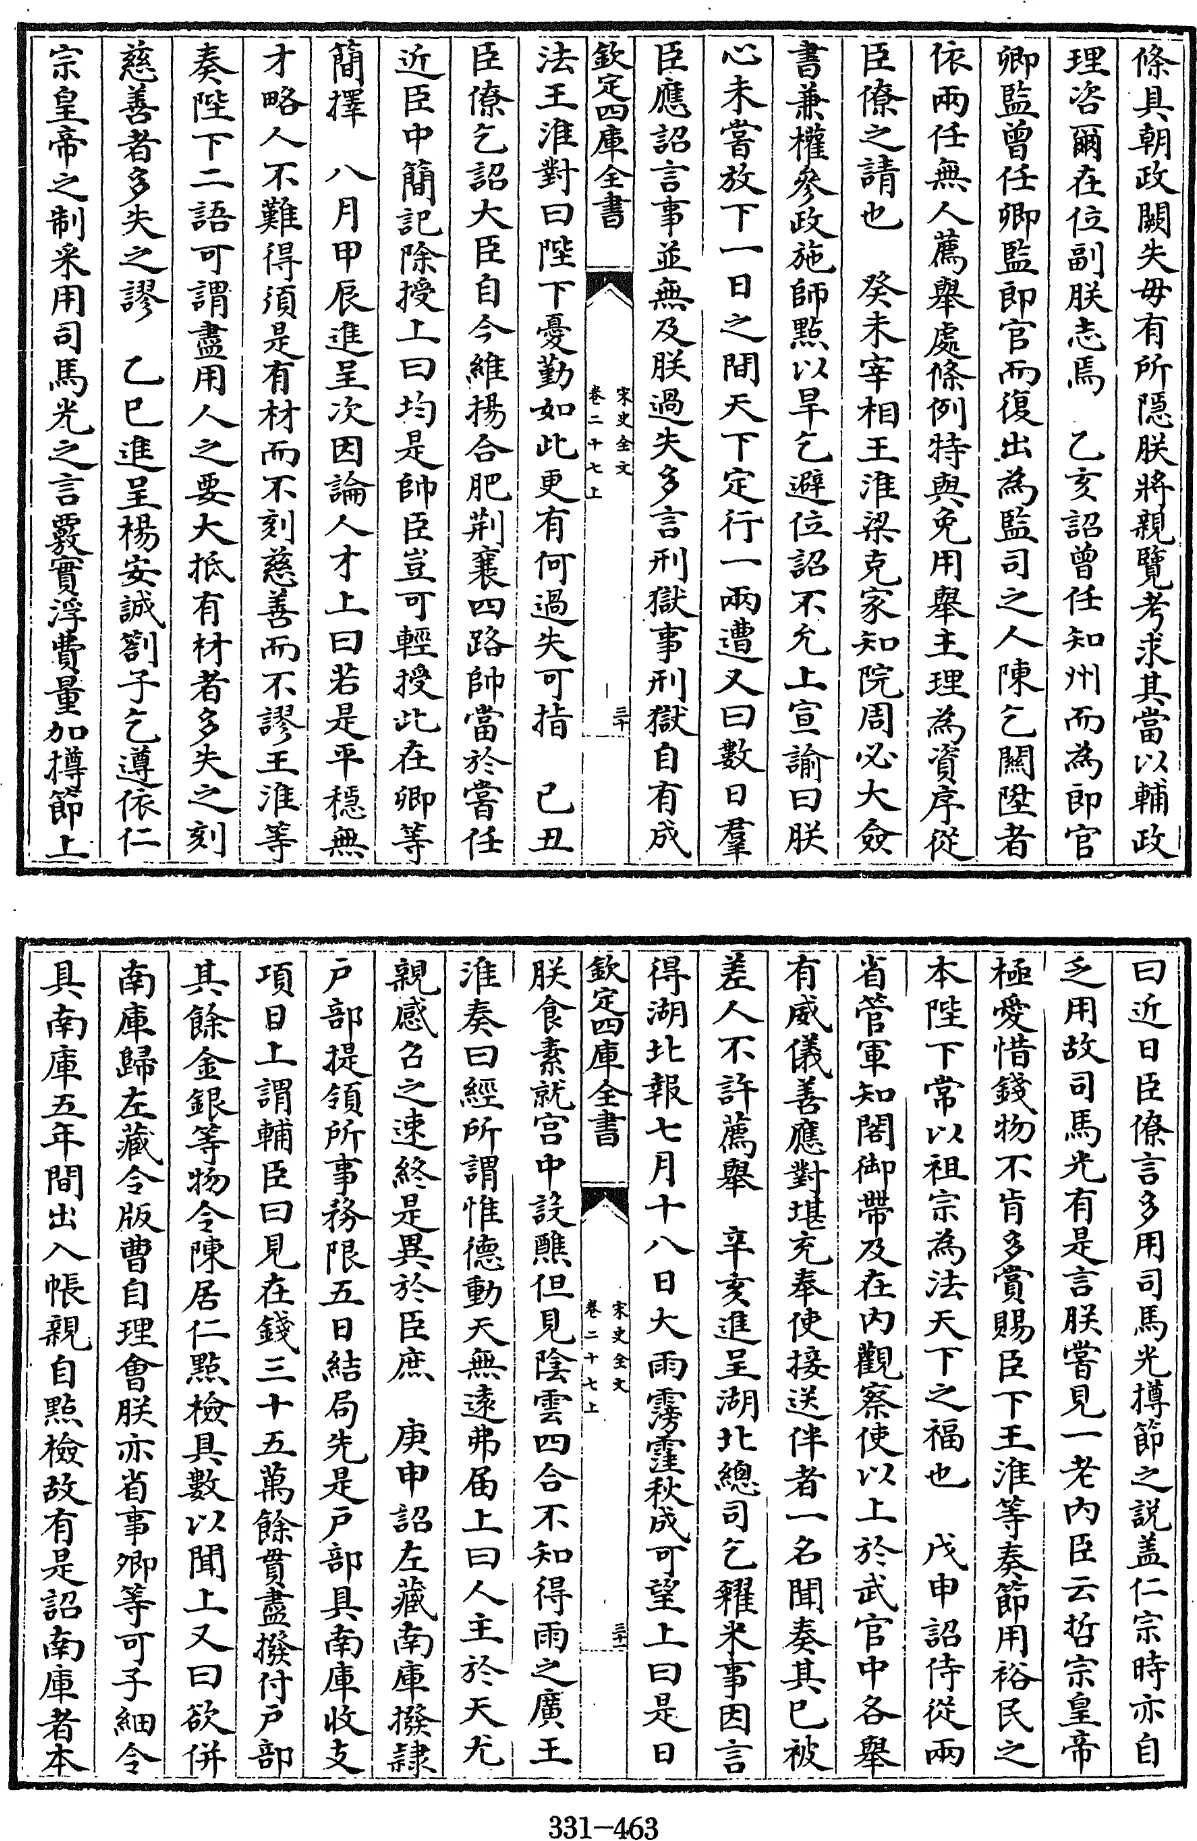 條具朝政闕失毋有所隱朕將親覽考求其當以輔政
理咨爾在位副朕志焉　乙亥詔曾任知州而為郎官
卿監曾任卿監郎官而復出為監司之人陳乞關陞者
依兩任無人薦舉處條例特與免用舉主理為資序從
臣僚之請也　癸未宰相王淮梁克家知院周必大僉
書兼權參政施師點以旱乞避位詔不允上宣諭曰朕
心未嘗放下一日之間天下定行一兩遭又曰數日羣
臣應詔言事並無及朕過失多言刑獄事刑獄自有成
欽定四庫全書
宋史全文
卷二十七上
三十
法王淮對曰陛下憂勤如此更有何過失可指　己丑
臣僚乞詔大臣自今維揚合肥荆襄四路帥當於嘗任
近臣中簡記除授上曰均是帥臣豈可輕授此在卿等
簡擇　八月甲辰進呈次因論人才上曰若是平穩無
才略人不難得須是有材而不刻慈善而不謬王淮等
奏陛下二語可謂盡用人之要大抵有材者多失之刻
慈善者多失之謬　乙巳進呈楊安誠劄子乞遵依仁
宗皇帝之制采用司馬光之言覈實浮費量加撙節上
曰近日臣僚言多用司馬光撙節之説盖仁宗時亦自
乏用故司馬光有是言朕嘗見一老內臣云哲宗皇帝
極愛惜錢物不肯多賞賜臣下王淮等奏節用裕民之
本陛下常以祖宗為法天下之福也　戊申詔侍從兩
省管軍知閤御帶及在內觀察使以上於武官中各舉
有威儀善應對堪充奉使接送伴者一名聞奏其已被
差人不許薦舉　辛亥進呈湖北總司乞糴米事因言
得湖北報七月十八日大雨霶霔秋成可望上曰是日
欽定四庫全書
宋史全文
卷二十七上
三十一
朕食素就宫中設醮但見陰雲四合不知得雨之廣王
淮奏曰經所謂惟德動天無遠弗届上曰人主於天尤
親感召之速終是異於臣庶　庚申詔左藏南庫撥隸
戶部提領所事務限五日結局先是戶部具南庫收支
項目上謂輔臣曰見在錢三十五萬餘貫盡撥付戶部
其餘金銀等物令陳居仁點檢具數以聞上又曰欲併
南庫歸左藏令版曹自理會朕亦省事卿等可子細令
具南庫五年間出入帳親自點檢故有是詔南庫者本
331-463